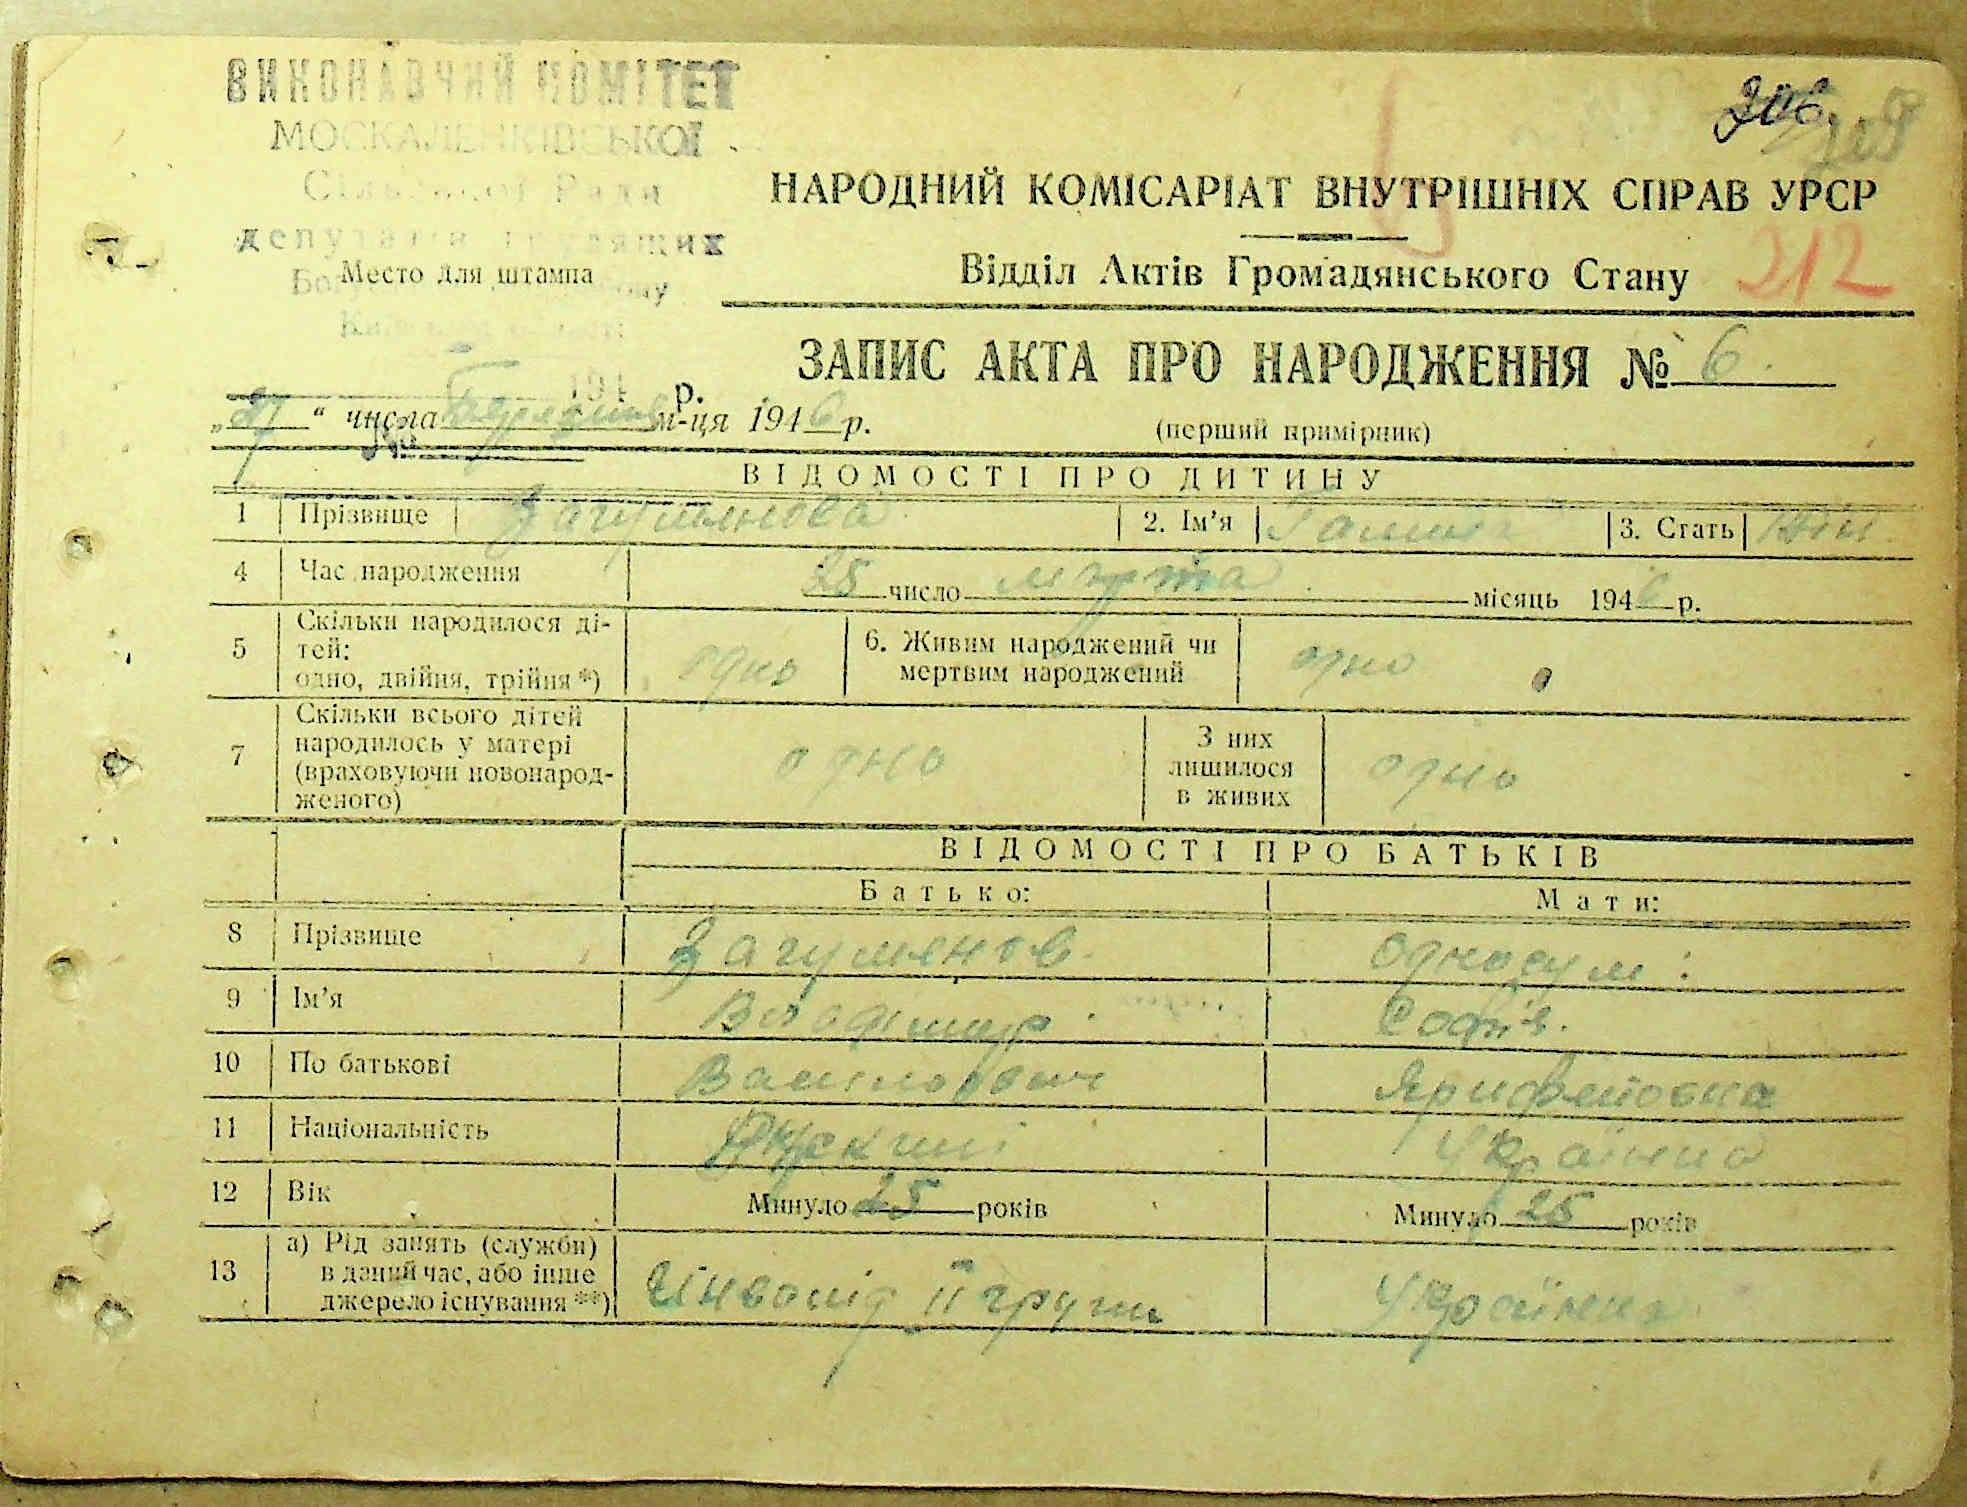 ВИКОНАВЧИЙ КОМІТЕТ
МОСКАЛЕНКІВСЬКОЇ
Сільської Ради
депутатів трудящих
Место для штампа
206
НАРОДНИЙ КОМІСАРІАТ ВНУТРІШНІХ СПРАВ УРСР
Відділ Актів Громадянського Стану
212
ЗАПИС АКТА ПРО НАРОДЖЕННЯ № 6
(перший примірник)
194 р.
" числа м-ця 1946 р.
№
ВІДОМОСТІ ПРО ДИТИНУ
1 Прізвище Загумьнова 2. Ім'я Галина 3. Стать жін.
4 Час народження 25 число марта місяць 1946 р.
5 Скільки народилося ді-
тей:
одно, двійня, трійня *) одно
6. Живим народжений чи
мертвим народжений одно
7 Скільки всього дітей
народилось у матері
(враховуючи новонарод-
женого) одно
З них
лишилося
в живих одно
ВІДОМОСТІ ПРО БАТЬКІВ
Батько: Мати:
8 Прізвище Загумьнов Односум
9 Ім'я Володімир Софія
10 По батькові Васильович
11 Національність Українка
12 Вік Минуло 25 років Минуло 25 років
13 а) Рід занять (служби)
в даний час, або інше
джерело існування **) Інвалід II групи Українка